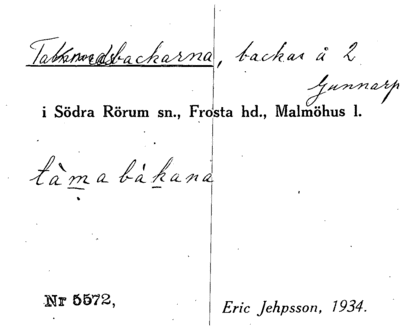 backarna, backar å 2
Gunnarp
i Södra Rörum sn., Frosta hd., Malmöhus l.
tàmabákana
Nr 5572,
Eric Jehpsson, 1934.